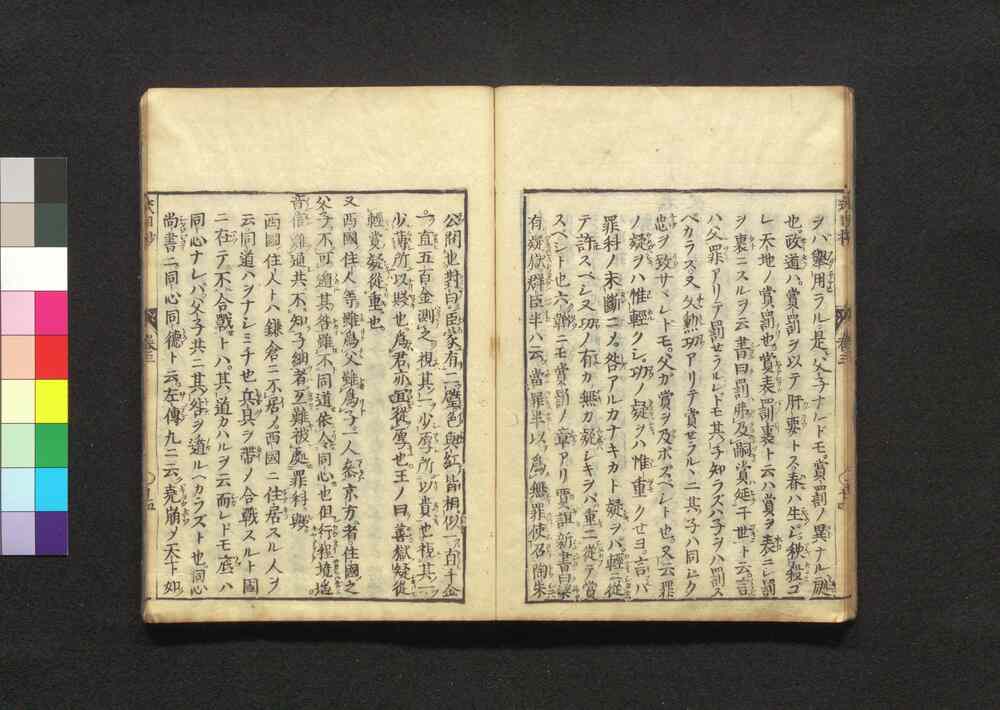 ヲバ擧用ラル是父子ナルドモ賞罰ノ異ナル厥
也政道ハ賞罰ヲ以テ肝要トス春ハ生シ秋殺ス
レ天地ノ賞罰也賞表罰裏ト云ハ賞ヲ表ニシ罰
ヲ裏ニスルヲ云書曰罰弗及嗣賞延于世ト云言
ハ父罪アリテ罰セラルレドモ其子知ラズハ子ヲハ罰ス
ベカラス又父勲功アリテ賞セラルヽニ其子ハ同シク
忠ヲ致サヾレドモ父ガ賞ヲ及ボスベシト也又云罪
ノ疑ヲハ惟輕クシ功ノ疑ヲハ惟重クせヨ言バ
罪科ノ未斷ニ乄咎アルカナキカト疑ヲバ輕ニ從
テ許スベシ又功ノ有カ無カ疑シキヲバ重ニ從テ賞
スベシト也六韜ニモ賞罰ノ章アリ賈誼新書曰梁
有疑獄群臣半ハ云當罪半以爲無罪使召陶朱
公問也對曰臣家有二璧色與紅皆相似一百千金
一直五百金測之視其一少厚所以貴也視其一
少薄所以賤也爲君亦宜從厚也王ノ曰善獄疑從
輕賞疑從重也
又西國住人等雖爲父雖爲子一人參京方者住國之
父子不可遁其咎雖不同道依令同心也但行程境遙
音信難通共不知子細者互難被處罪科歟
西國住人トハ鎌倉ニ不居乄西國ニ住居スル人ヲ
云同道ハヲナシミチ也兵具ヲ帶乄合戰スルト固
ニ在テ不合戰トハ其道カハルヲ云而レドモ底ハ
同心ナレバ父子共ニ其咎ヲ遁ルヘカラズト也同心
尚書ニ同心同德ト云左傳九ニ云堯崩乄天下如